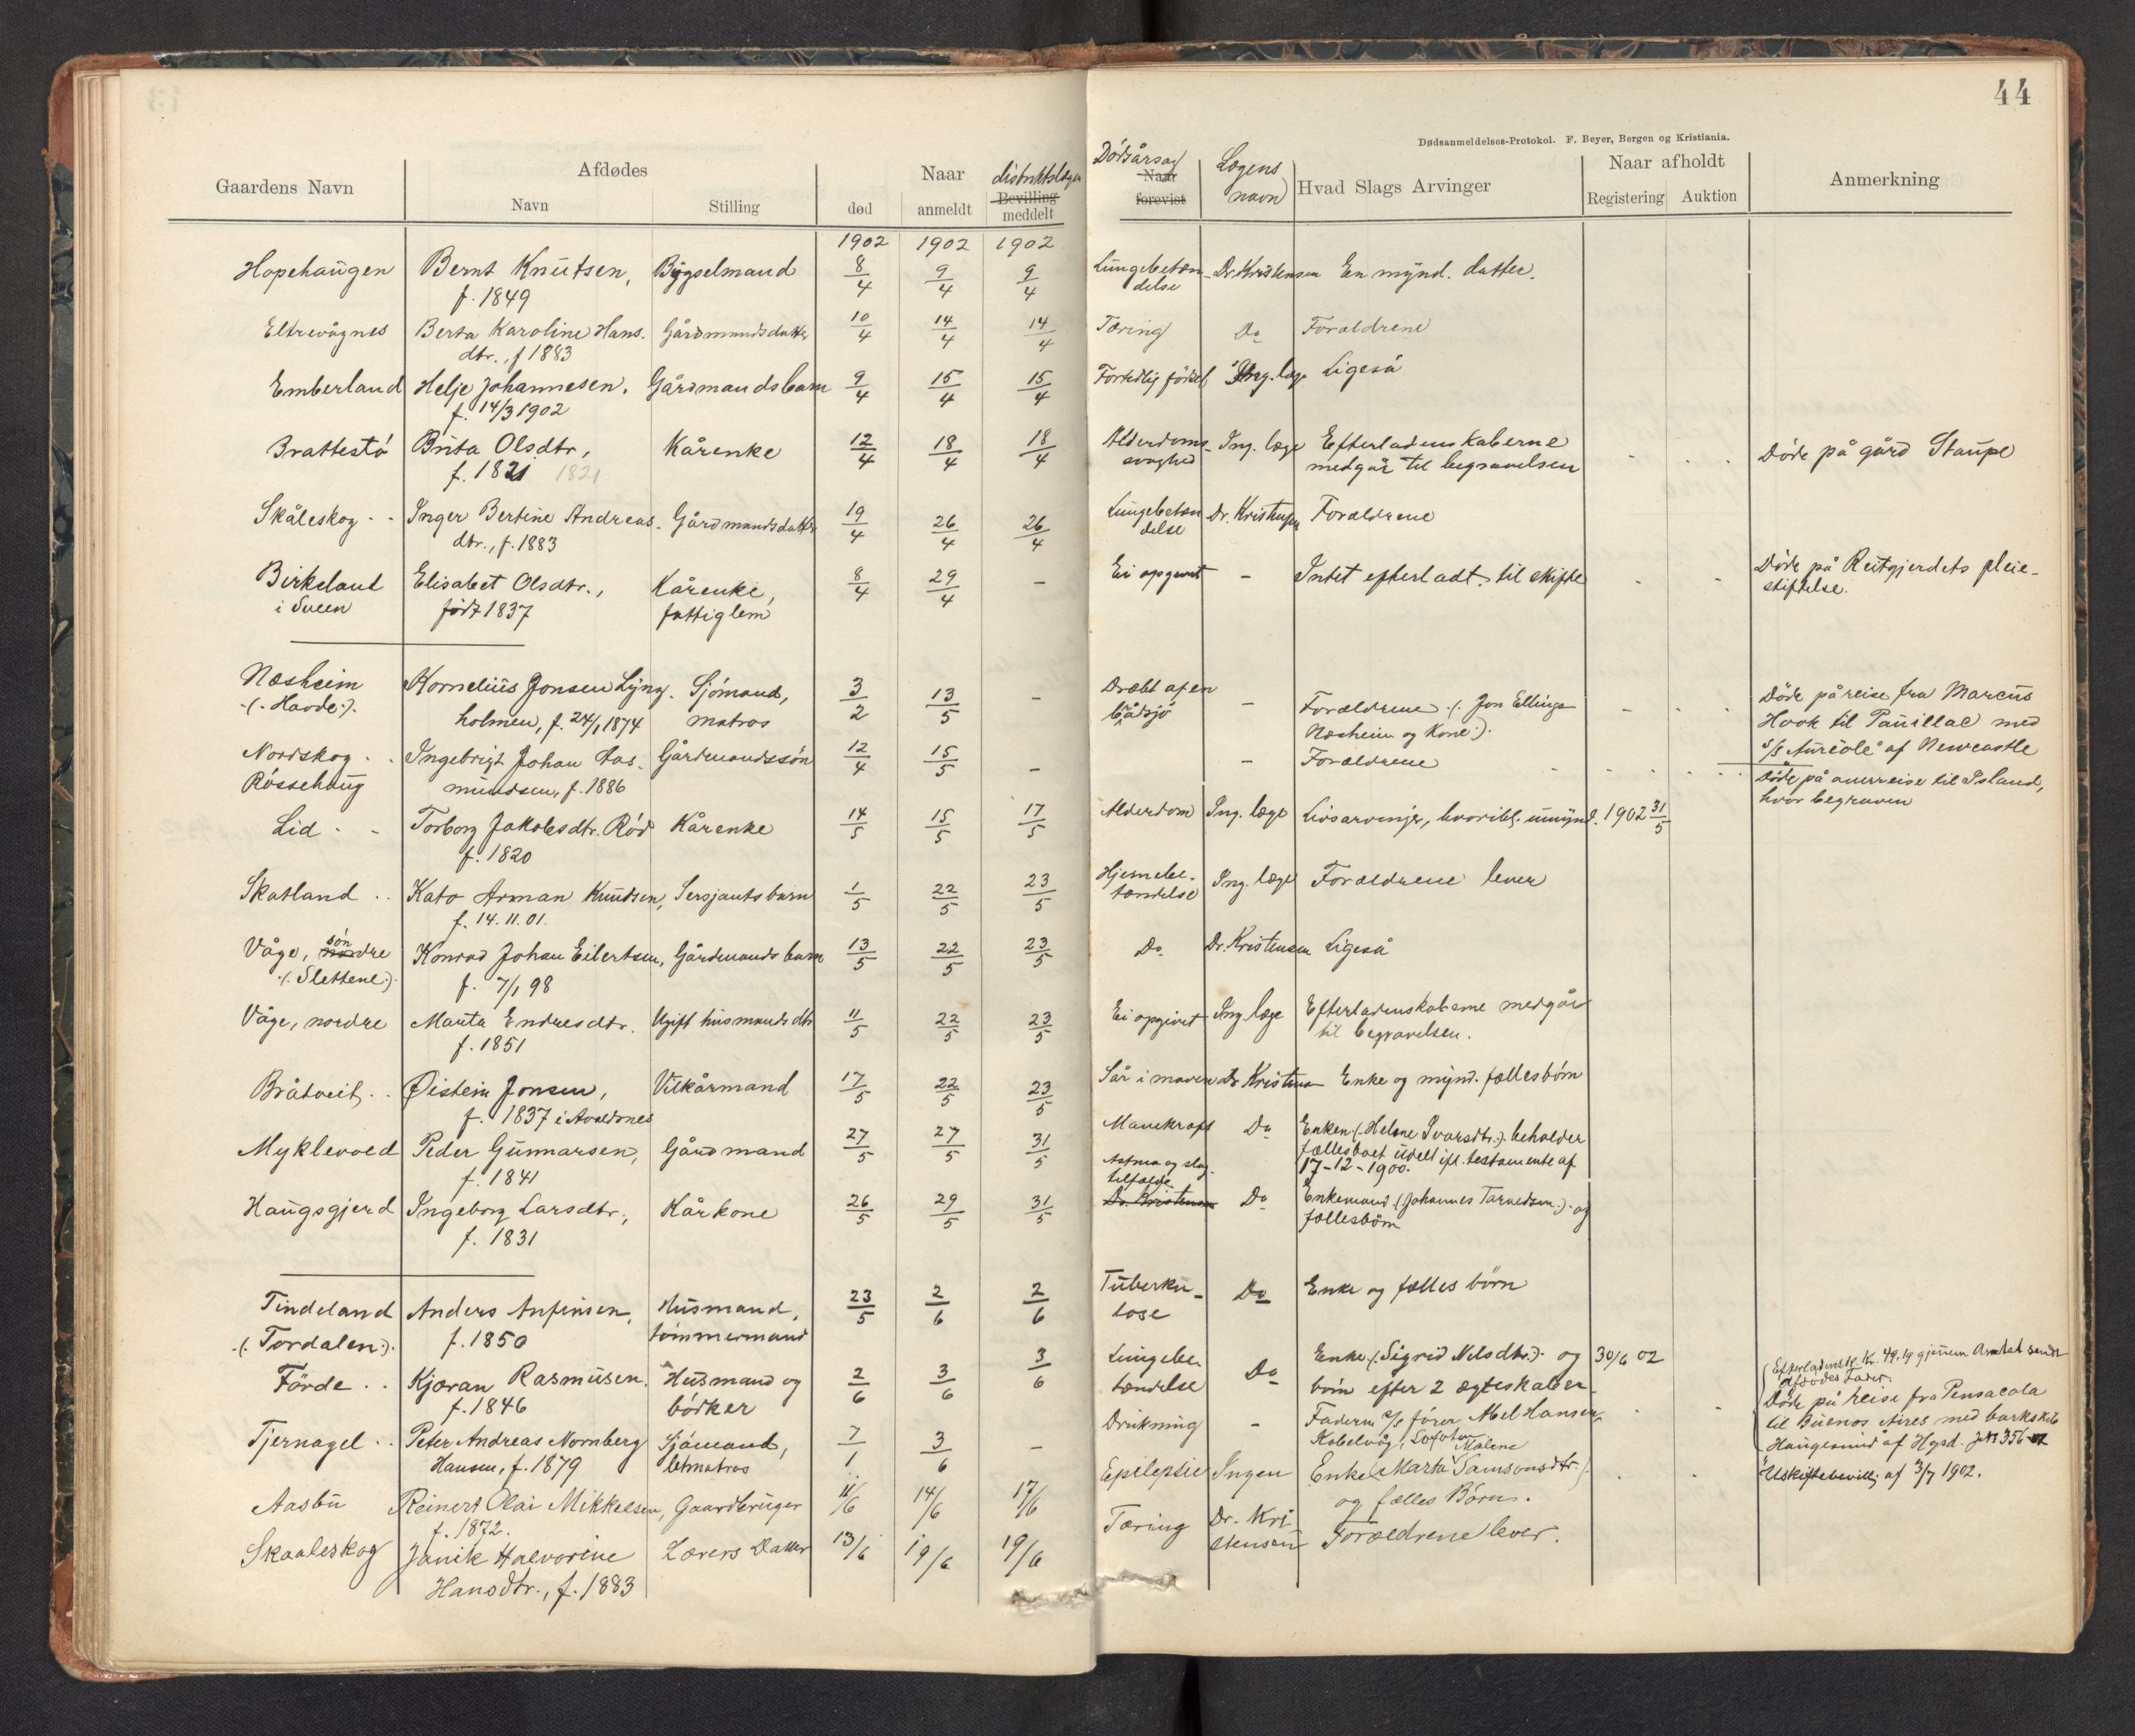 44
Dødsanmeldelses-Protokol. F. Beyer, Bergen og Kristiania.
Gaardens Navn | Afdødes | Naar | Dødsårsag | Lægens navn | Hvad Slags Arvinger | Naar afholdt | Anmerkning
Navn | Stilling | død | anmeldt | distriktslægen Bevilling meddelt | Naar forevist | Registering | Auktion
1902 | 1902 | 1902
Hopehaugen | Bernt Knutsen, | Bygselmand | 8/4 | 9/4 | 9/4 | Lungebetæn- | Dr. Kristensen | En mynd. datter.
f. 1849 | delse
Eltrevågnes | Berta Karoline Hans- | Gårdmandsdatter | 10/4 | 14/4 | 14/4 | Tæring | Do | Forældrene
dtr., f 1883
Emberland | Helje Johannesen, | Gårdmandsbarn | 9/4 | 15/4 | 15/4 | Fortidlig fødsel | Ing. læge | Ligeså
f. 14/3 1902
Brattestø | Brita Olsdtr, | Kårenke | 12/4 | 18/4 | 18/4 | Alderdoms- | Ing. læge | Efterladenskaberne | Døde på gård Staupe
f. 1821 1821 | svaghed | medgår til begravelsen
Skåleskog | Inger Bertine Andreas- | Gårdmandsdatter | 19/4 | 26/4 | 26/4 | Lungebetæn | Dr. Kristensen | Forældrene
dtr., f. 1883 | delse
Birkeland | Elisabet Olsdtr., | Kårenke, | 8/4 | 29/4 | - | Ei opgivet | - | Intet efterladt til skifte | Døde på Reitgjerdets pleie-
i Sveen | født 1837 | fattiglem | stiftelse.
Næsheim | Kornelius Jonsen Lyng- | Sjømand, | 3/2 | 13/5 | - | Dræbt af en | - | Forældrene (: Jon Ellings | Døde på reise fra Marcus
(: Havde :). | holmen, f. 24/1 1874 | matros | bådsjø | Næsheim og Kone :). | Hook til Pauillac med
Nordskog | Ingebrigt Johan Aas- | Gårdmandssøn | 12/4 | 15/5 | - | - | Forældrene | S/S "Aureole" af Newcastle
Røssehaug | mundsen, f. 1886 | Døde på hvor begraven til Island,
Lid | Torborg Jakobsdtr. Rød | Kårenke | 14/5 | 15/5 | 17/5 | Alderdom | Ing. læge | Livsarvinger, hvoribl. umynd. | 1902 31/5
f. 1820
Skatland | Kato Arman Knudsen, | Sersjantsbarn | 1/5 | 22/5 | 23/5 | Hjernebe- | Ing. læge | Forældrene lever
f. 14.11.01. | tændelse
Våge, søndre | Konrad Johan Eilertsen, | Gårdmandsbarn | 13/5 | 22/5 | 23/5 | Do | Dr. Kristensen | Ligeså
(: Slettene :). | f. 7/1 98
Våge, nordre | Marita Endresdtr. | Ugift husmandsdtr | 11/5 | 22/5 | 23/5 | Ei opgivet | Ing. læge | Efterladenskaberne medgår
f. 1851 | til begravelsen.
Bråtveit | Øistein Jonsen, | Vilkårmand | 17/5 | 22/5 | 23/5 | Sår i maven | Dr Kristensen | Enke og mynd. fællesbørn
f. 1837 i Avaldsnes
Myklevold | Peder Gunnarsen, | Gårdmand | 27/5 | 27/5 | 31/5 | Mavekræft | Do | Enken (: Helene Ivarsdtr. :) beholder
f. 1841 | fællesboet udelt ifl. testamente af
17-12-1900.
Haugsgjerd | Ingeborg Larsdtr., | Kårkone | 26/5 | 29/5 | 31/5 | Astma og slag- tilfælde | Do | Enkemand (Johannes Taraldsen :) og
f. 1831 | Dr. Kristensen | fællesbørn
Tindeland | Anders Anfinsen, | Husmand, | 23/5 | 2/6 | 2/6 | Tuberku- | Do | Enke og fælles børn
(: Tordalen :). | f. 1850 | tømmermand | lose
Førde | Kjøran Rasmusen, | Husmand og | 2/6 | 3/6 | 3/6 | Lungebe | Do | Enke (: Sigrid Nilsdtr. :) og | 30/6 02 | Efterladensk. Kr. 49,19 gjennem Amtet sendt
f. 1846 | bødker | tændelse | børn efter 2 ægteskaber | Afdødes Fader.
Tjernagel | Peter Andreas Nornberg | Sjømand, | 7/1 | 3/6 | - | Drukning | - | Faderen s/s fører Abel Hansen | Døde på reise fra Pensacola
Hansen, f. 1879 | letmatros | Kabelvåg, Lofoten | til Buenos Aires med barkskib
"Haugesund" af Hgsd. JN 356
Aasbu | Reinert Olai Mikkelsen, | Gaardbruger | 11/6 | 14/6 | 17/6 | Epilepsie | Ingen | Enke (Marta Malene Samsonsdtr.) | Uskiftebevillg af 3/7 1902.
f. 1872. | og fælles Børn.
Skaaleskog | Janik Halvorine | Lærers Datter | 13/6 | 19/6 | 19/6 | Tæring | Dr. Kri | Forældrene lever.
Hansdtr., f. 1883 | stensen